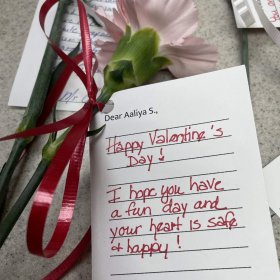 Dear Aaliya S.,
Happy Valentine's
Day!
I hope you have
a fun day and
your heart is safe
+ happy!